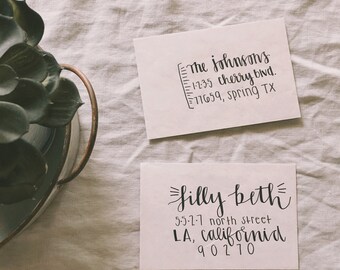 the johnsons
1-2-35 cherry blvd.
77659, spring TX
jilly beth
5-5-2-7 north street
LA, california
90270